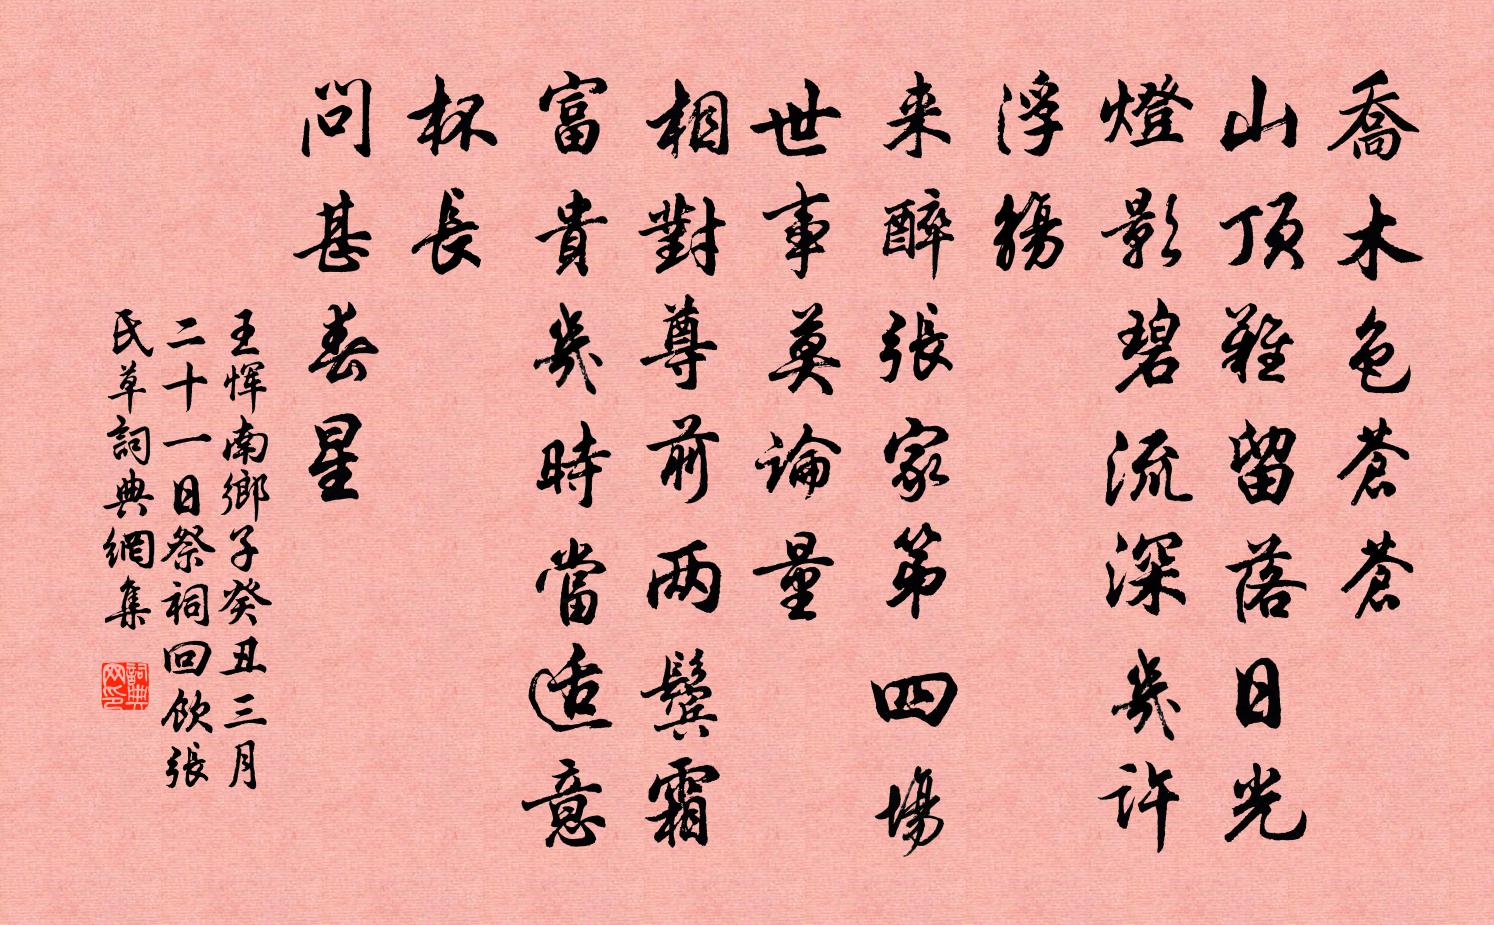 喬木色蒼蒼
山頂難留落日光
燈影碧流深幾許
浮觴
来醉張家第四場
世事莫論量
相對尊前两鬢霜
富貴幾時當适意
杯長
問甚春星
王惲南鄉子癸丑三月
二十一日祭祠回飲張
氏草詞典網集
詞典网印